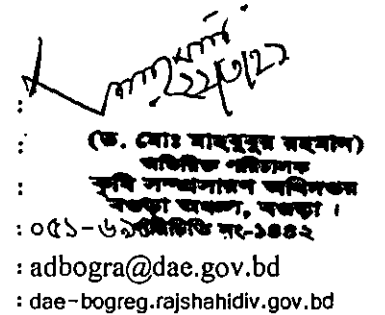 :
: (ড. মোঃ মাহবুবুর রহমান)
অতিরিক্ত পরিচালক
: কৃষি সম্প্রসারণ অধিদপ্তর
বগুড়া অঞ্চল, বগুড়া ।
: ০৫১-৬ পরিচিতি নং-১৪৪২
: adbogra@dae.gov.bd
: dae-bogreg.rajshahidiv.gov.bd